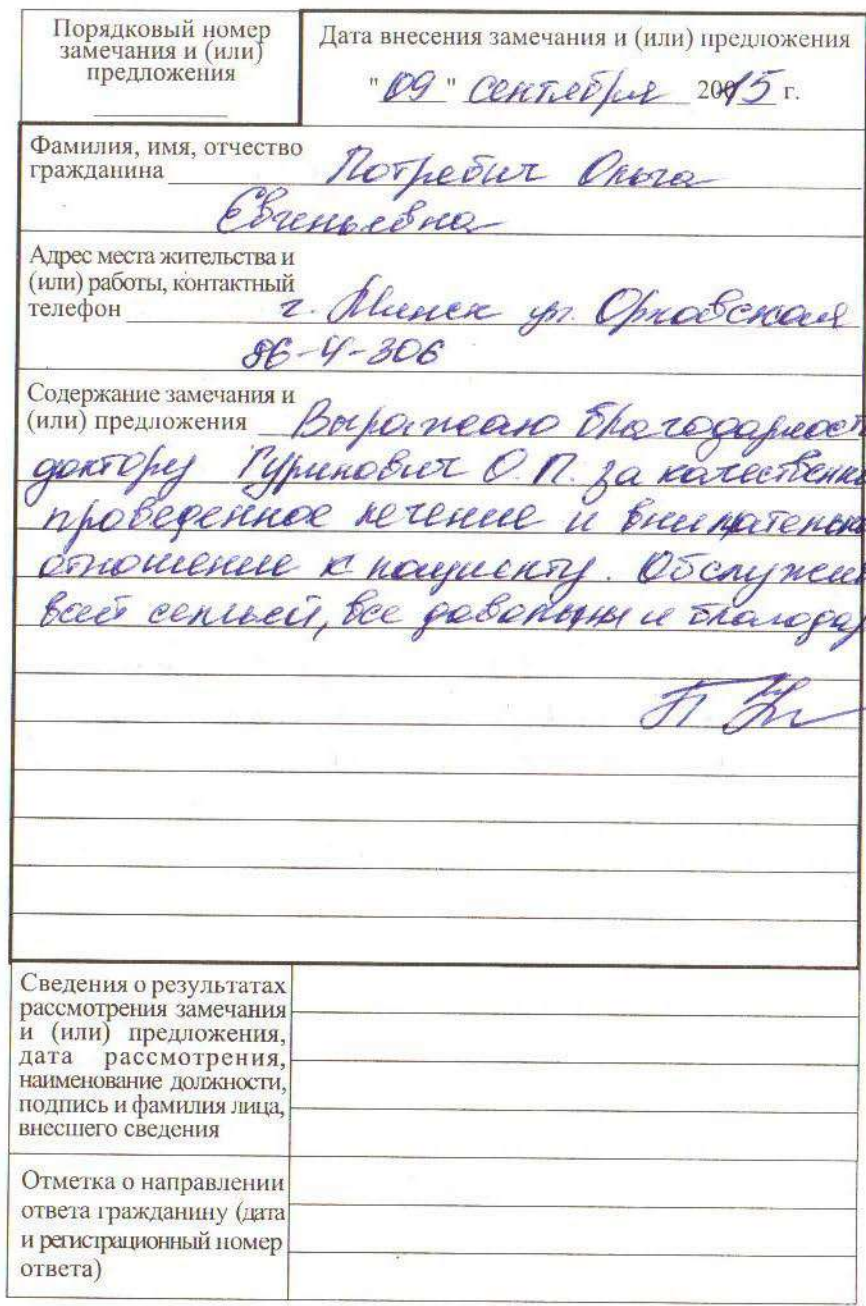 Порядковый номер
замечания и (или)
предложения
Дата внесения замечания и (или) предложения
"09" сентября 2015 г.
Фамилия, имя, отчество
гражданина Потребич Ольга
Евгеньевна
Адрес места жительства и
(или) работы, контактный
телефон г. Минск ул. Орловская
86-4-306
Содержание замечания и
(или) предложения Выражаю благодарност
доктору Гуринович О.П. за качественно
проведенное лечение и внимательно
отношение к пациенту. Обслужив
всей семьей, все довольны и благодар
Сведения о результатах
рассмотрения замечания
и (или) предложения,
дата рассмотрения,
наименование должности,
подпись и фамилия лица,
внесшего сведения
Отметка о направлении
ответа гражданину (дата
и регистрационный номер
ответа)